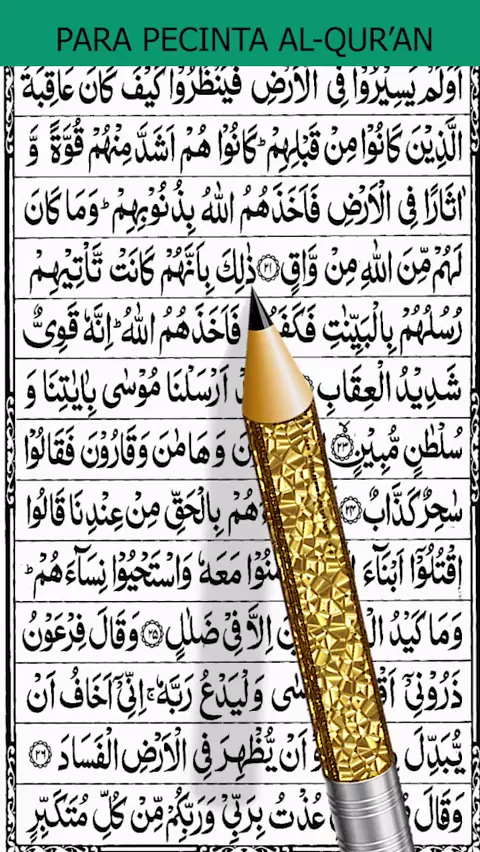 PARA PECINTA AL-QUR’AN
اَوَلَمْ يَسِيْرُوْا فِى الْاَرْضِ فَيَنْظُرُوْا كَيْفَ كَانَ عَاقِبَةُ
الَّذِيْنَ كَانُوْا مِنْ قَبْلِهِمْ ؕ كَانُوْا هُمْ اَشَدَّ مِنْهُمْ قُوَّةً وَّ
اٰثَارًا فِى الْاَرْضِ فَاَخَذَهُمُ اللّٰهُ بِذُنُوْبِهِمْ ؕ وَمَا كَانَ
لَهُمْ مِّنَ اللّٰهِ مِنْ وَّاقٍ ﴿۲۱﴾ ذٰلِكَ بِاَنَّهُمْ كَانَتْ تَّاْتِيْهِمْ
رُسُلُهُمْ بِالْبَيِّنٰتِ فَاَخَذَهُمُ اللّٰهُ ؕ اِنَّهٗ قَوِىٌّ
شَدِيْدُ الْعِقَابِ اَرْسَلْنَا مُوْسٰى بِاٰيٰتِنَا وَ
سُلْطٰنٍ مُّبِيْنٍ ﴿۲۳﴾ وَهَامٰنَ وَقَارُوْنَ فَقَالُوْا
سٰحِرٌ كَذَّابٌ ﴿۲۴﴾ بِالْحَقِّ مِنْ عِنْدِنَا قَالُوا
اقْتُلُوْۤا اَبْنَآءَ مَعَهٗ وَاسْتَحْيُوْا نِسَآءَهُمْ ؕ
وَمَا كَيْدُ اِلَّا فِىْ ضَلٰلٍ ﴿۲۵﴾ وَقَالَ فِرْعَوْنُ
ذَرُوْنِىْۤ وَلْيَدْعُ رَبَّهٗ ۚ اِنِّىْۤ اَخَافُ اَنْ
يُّبَدِّلَ اَنْ يُّظْهِرَ فِى الْاَرْضِ الْفَسَادَ ﴿۲۶﴾
وَقَالَ عُذْتُ بِرَبِّىْ وَرَبِّكُمْ مِّنْ كُلِّ مُتَكَبِّرٍ